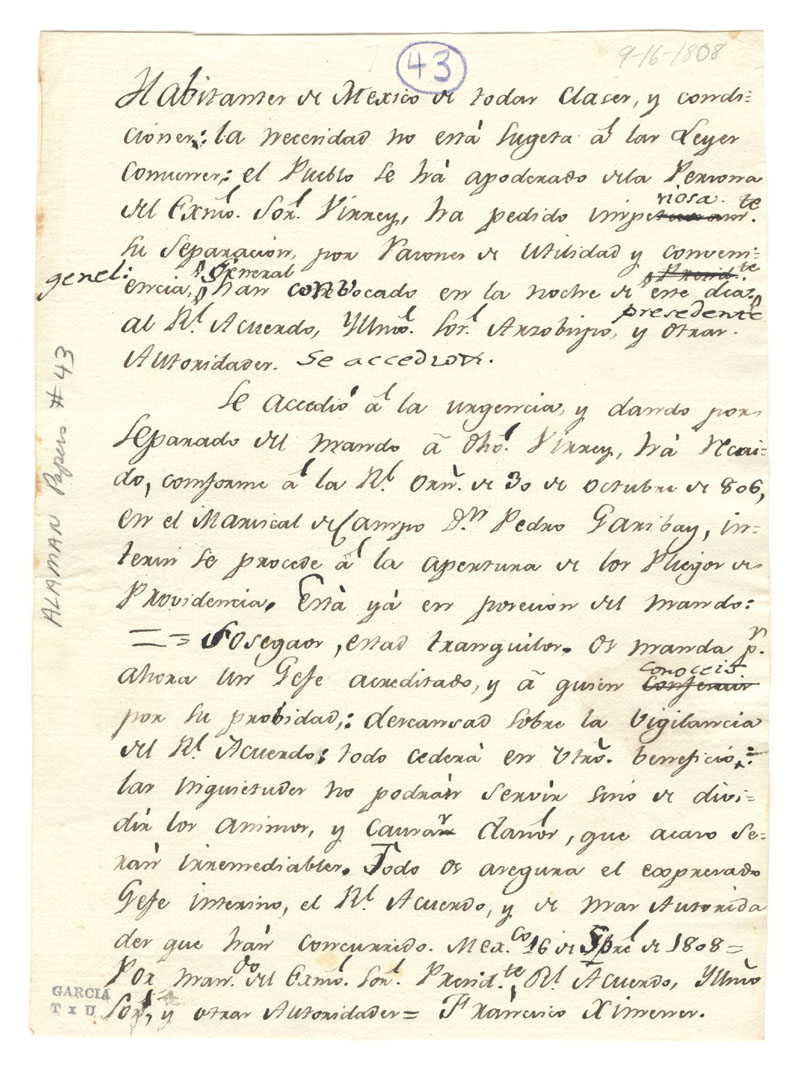 43
9-16-1808
Habitantes de Mexico de todas clases, y condi=
ciones: la necesidad no está sugeta á las Leyes
comunes: el Pueblo se há apoderado de la Persona
riosa.te
del Exmo. Sor. Virrey, ha pedido impetuosamte.
su separacion, por razones de utilidad y conveni=
genel: General Presid.te
encia, han convocado en la noche de este dia
presedente
al Rl. Acuerdo, Yllmo. Sor. Arzobispo, y otras
Autoridades. Se accedion.
Se accedió á la urgencia, y dando por
separado del mando á dho. Virrey, há recai=
do, conforme á la Rl. Orn. de 30 de octubre de 806,
en el Mariscal de Campo Dn. Pedro Garibay, in=
terin se procede á la apertura de los Pliegos de
Providencia. Está yá en posecion del mando:
= = Sosegaos, estad tranquilos. Os manda pr.
conoceis
ahora un Gefe acreditado, y á quien
por su probidad,: descansad sobre la vigilancia
del Rl. Acuerdo; todo cederá en vtro. beneficio:
las inquietudes no podrán servir sinó de divi=
dir los animos, y causar daños, que acaso se=
rán irremediables. Todo os asegura el expresado
Gefe interino, el Rl. Acuerdo, y de mas Autorida
des que hán concurrido. Mex.co 16 de Spre. de 1808=
Por man.do del Exmo. Sor. Presid.te, Rl. Acuerdo, Yllmo
Sor. y otras Autoridades= Francisco Ximenes.
ALAMAN Papers #43
GARCIA
T x U